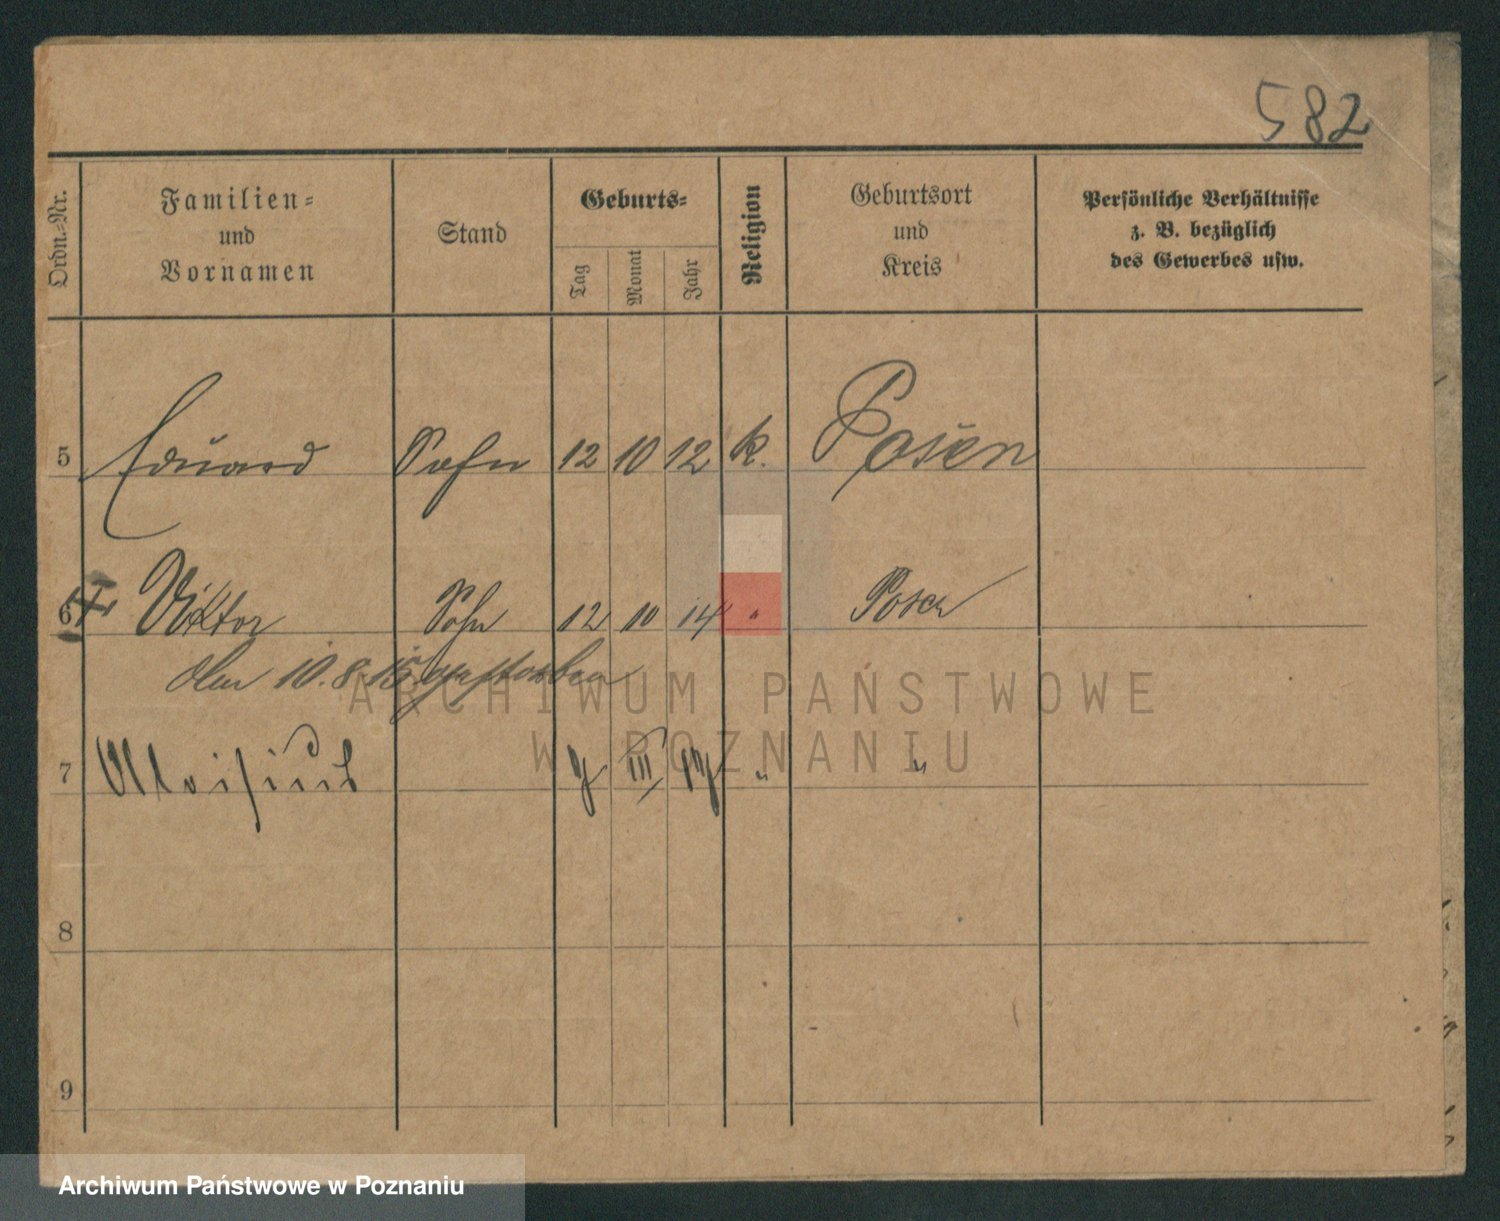 582
Ordn.-Nr.
Familien-
und
Vornamen
Stand
Geburts-
Tag
Monat
Jahr
Religion
Geburtsort
und
Kreis
Persönliche Verhältnisse
z. B. bezüglich
des Gewerbes usw.
5 Eduard Sohn 12 10 12 k. Posen
6 Viktor Sohn 12 10 14 " Posen
den 10.8.15 gestorben
7 Aloisius 9 III 19 " "
8
9
ARCHIWUM PAŃSTWOWE
W POZNANIU
Archiwum Państwowe w Poznaniu